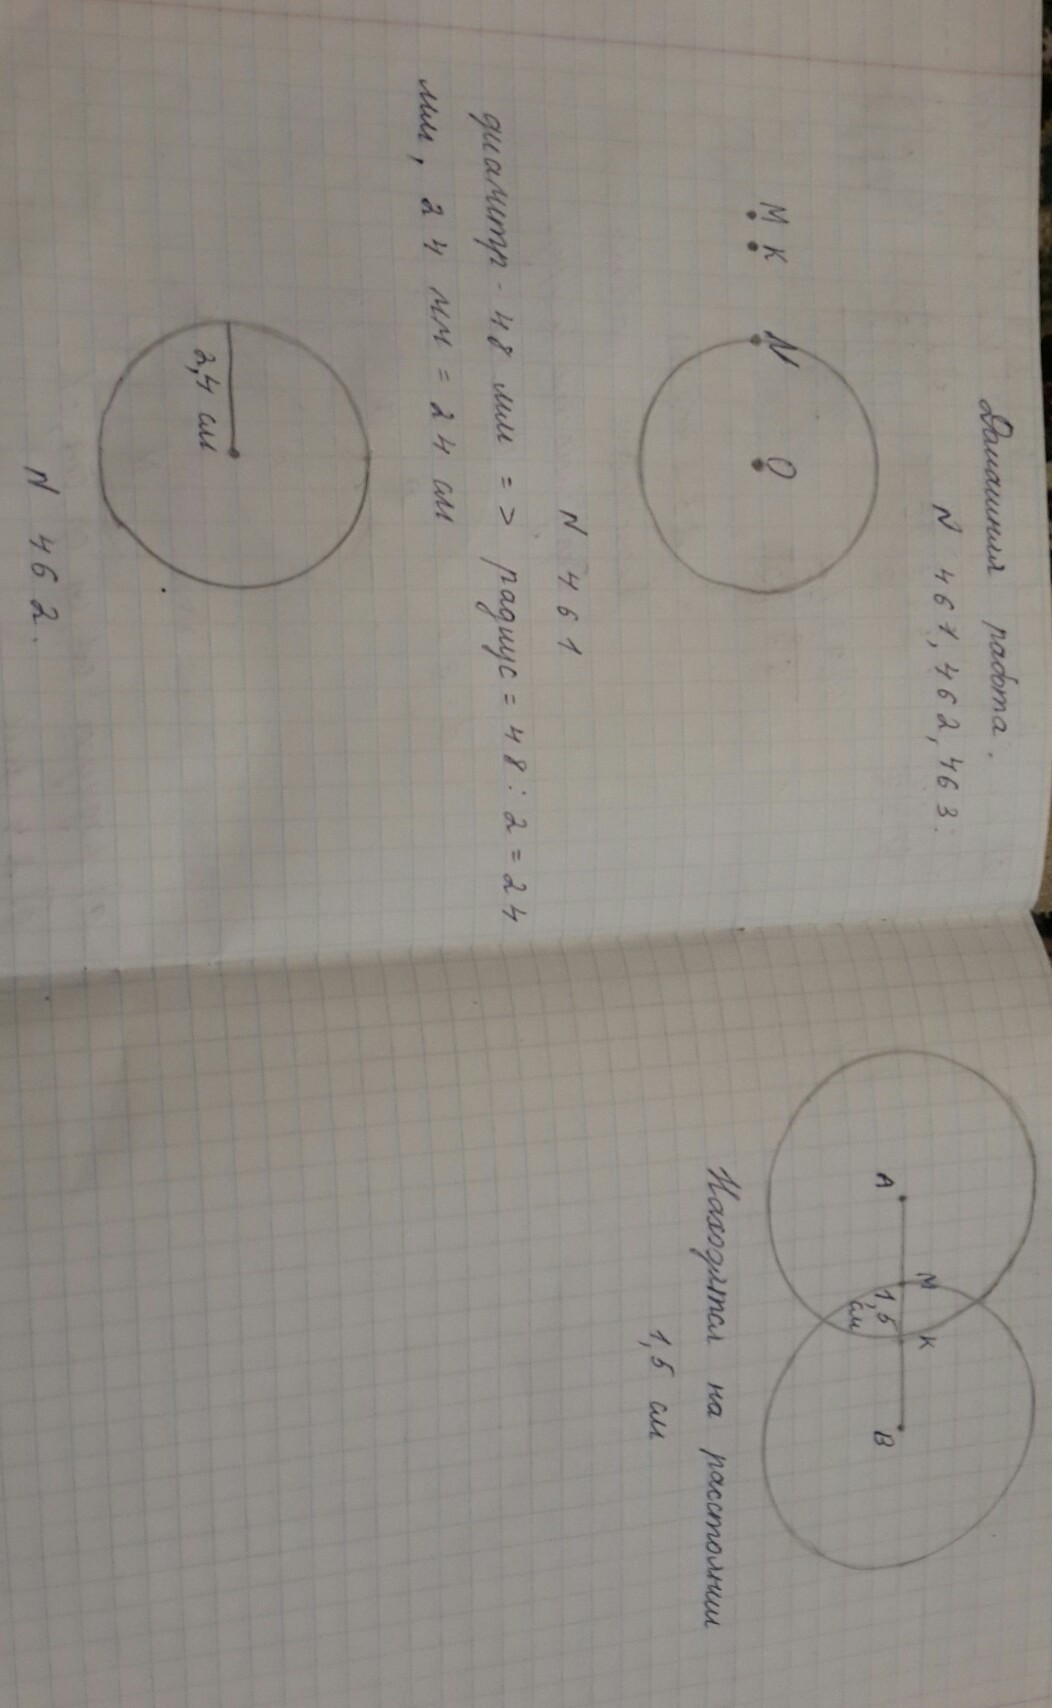 Домашняя работа.
N 461, 462, 463.
M K N O
N 461
диамитр - 48 мм => радиус = 48 : 2 = 24
мм, 24 мм = 24 см
2,4 см
N 462.
A M K B
1,5
см
Находятся на расстоянии
1,5 см